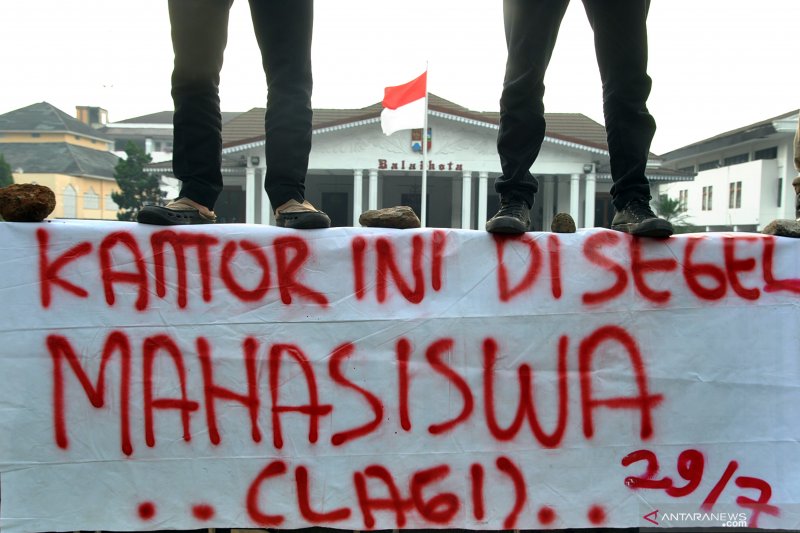 Balaikota
KANTOR INI DI SEGEL
MAHASISWA
..(LAGI)..
29/7
ANTARANEWS
.com